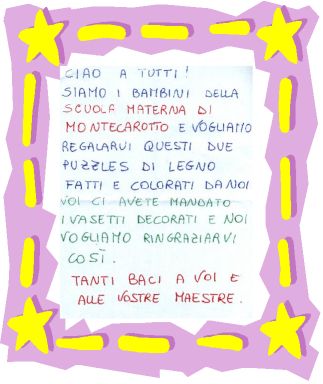 CIAO A TUTTI!
SIAMO I BAMBINI DELLA
SCUOLA MATERNA DI
MONTECAROTTO E VOGLIAMO
REGALARVI QUESTI DUE
PUZZLES DI LEGNO
FATTI E COLORATI DA NOI
VOI CI AVETE MANDATO
I VASETTI DECORATI E NOI
VOGLIAMO RINGRAZIARVI
COSÌ.
TANTI BACI A VOI E
ALLE VOSTRE MAESTRE.